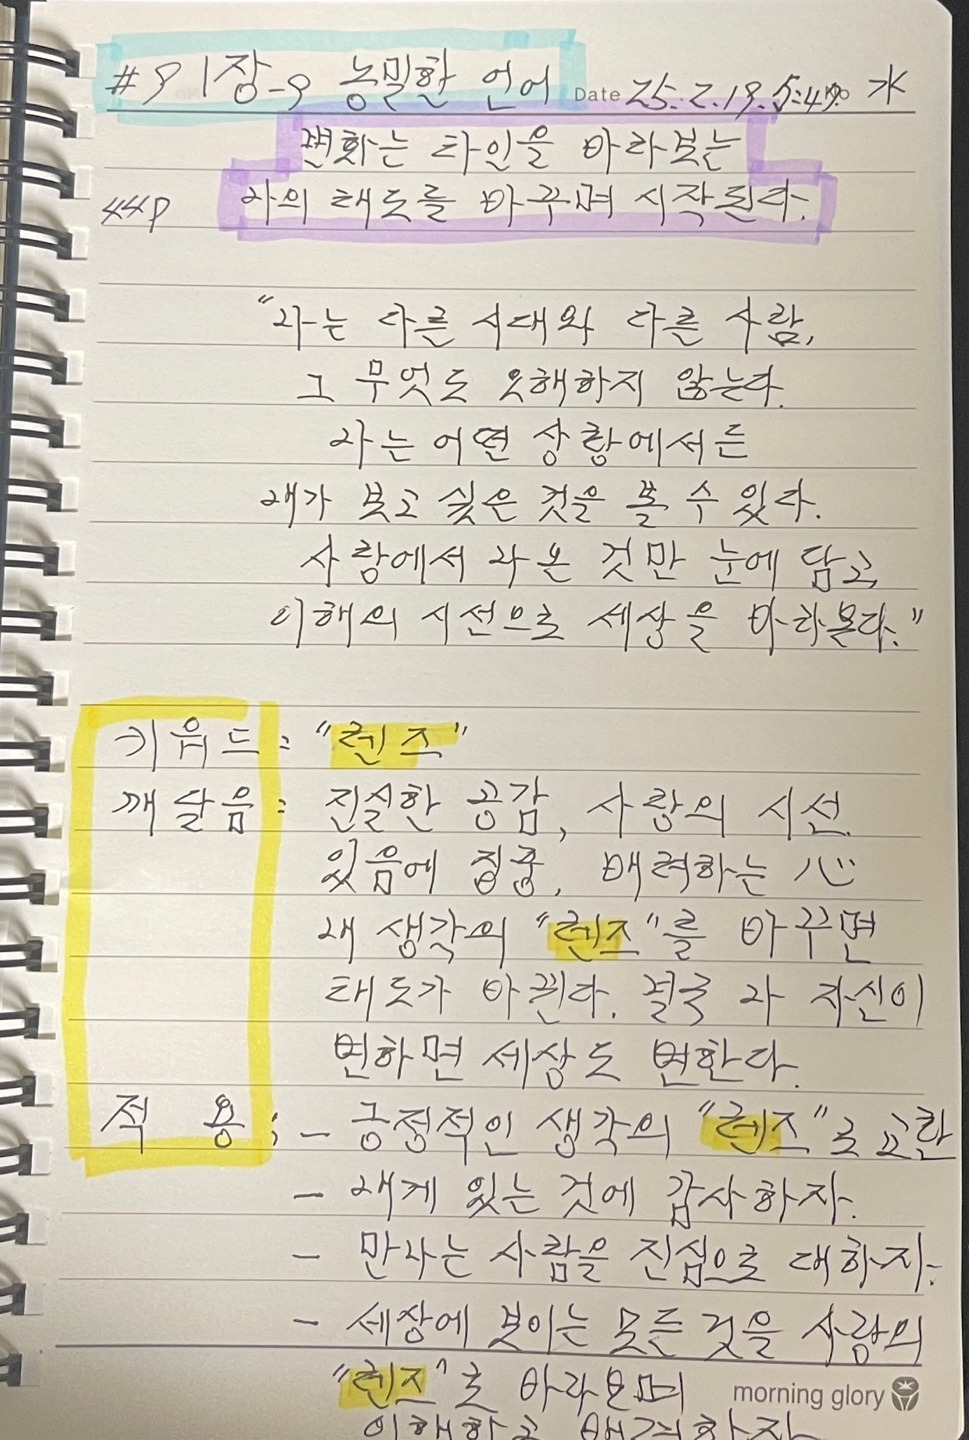 #9 1장-9 농밀한 언어 Date 25.2.19. 5:49 水
변화는 타인을 바라보는
44P 나의 태도를 바꾸며 시작된다.
"나는 다른 시대와 다른 사람,
그 무엇도 오해하지 않는다.
나는 어떤 상황에서든
내가 보고 싶은 것을 볼 수 있다.
사랑에서 나온 것만 눈에 담고,
이해의 시선으로 세상을 바라본다."
키워드 : "렌즈"
깨달음 : 진실한 공감, 사랑의 시선.
있음에 집중, 배려하는 心
내 생각의 "렌즈"를 바꾸면
태도가 바뀐다. 결국 나 자신이
변하면 세상도 변한다.
적 용 : - 긍정적인 생각의 "렌즈"로 교환
- 내게 있는 것에 감사하자.
- 만나는 사람을 진심으로 대하자.
- 세상에 보이는 모든 것을 사랑의
"렌즈"로 바라보며
이해하고 배려하자
morning glory